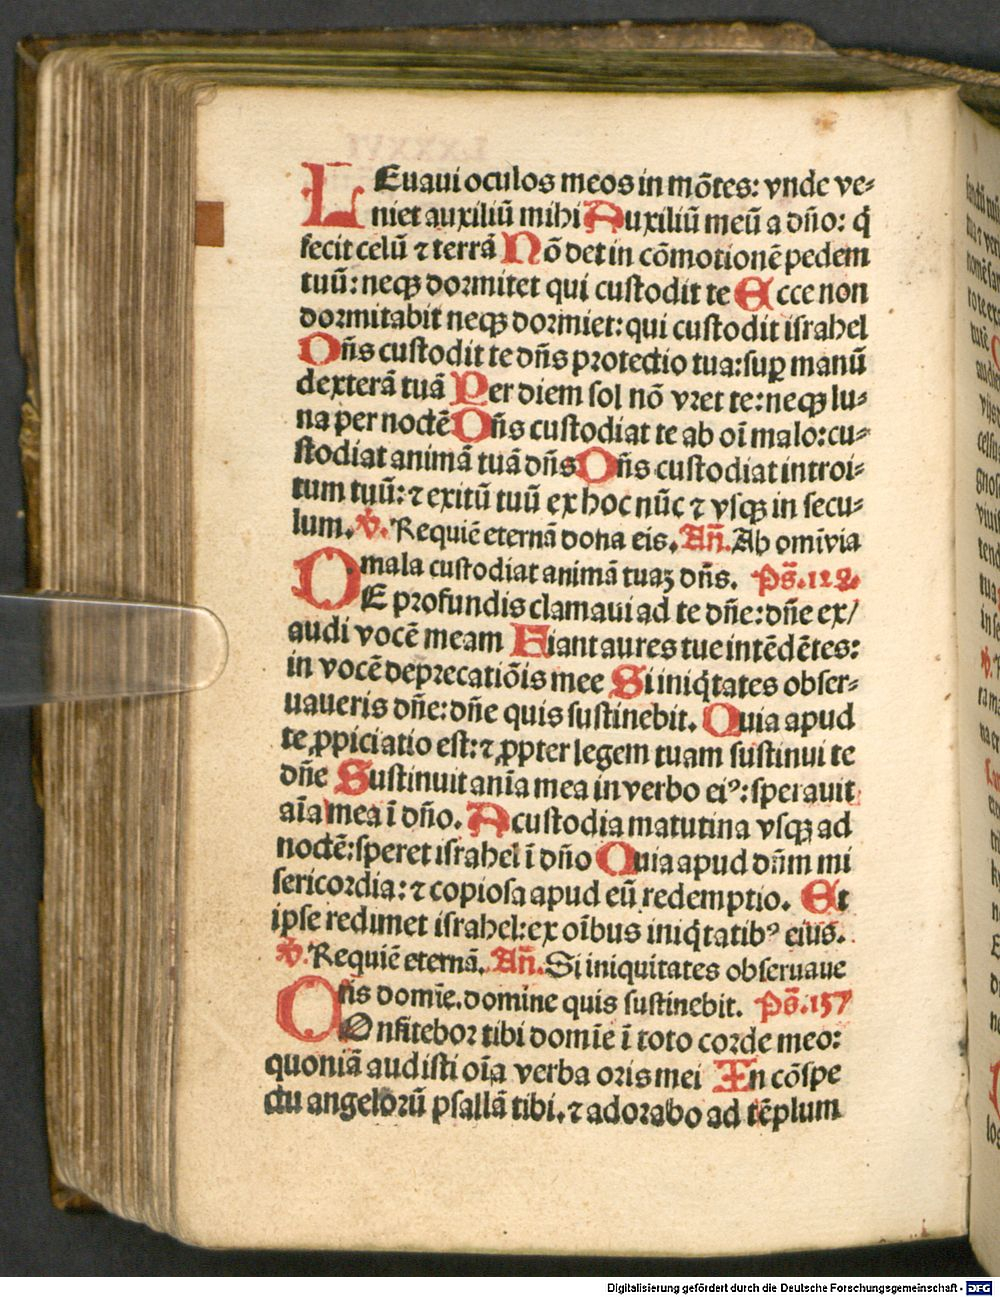 LEuaui oculos meos in mõtes: vnde ve⸗
niet auxiliũ mihi Auxiliũ meũ a dño: q̃
fecit celũ ⁊ terrã Nõ det in cõmotionẽ pedem
tuũ: neqꝫ dormitet qui custodit te Ecce non
dormitabit neqꝫ dormiet: qui custodit israhel
Dñs custodit te dñs protectio tua: suꝑ manũ
dexterã tuã Per diem sol nõ vret te: neqꝫ lu⸗
na per noctẽ Dñs custodiat te ab oĩ malo: cu⸗
stodiat animã tuã dñs Dñs custodiat introi⸗
tum tuũ: ⁊ exitũ tuũ ex hoc nũc ⁊ vsqꝫ in secu⸗
lum. ℣. Requiẽ eternã dona eis. Añ. Ab omĩ via
mala custodiat animã tuaꝫ dñs. Ps̃. 122.
DE profundis clamaui ad te dñe: dñe ex/
audi vocẽ meam Fiant aures tue intẽdẽtes:
in vocẽ deprecatiõis mee Si iniq̃tates obser⸗
uaueris dñe: dñe quis sustinebit. Quia apud
te ꝓpiciatio est: ⁊ ꝓpter legem tuam sustinui te
dñe Sustinuit anĩa mea in verbo eiꝰ: sperauit
aĩa mea ĩ dño. A custodia matutina vsqꝫ ad
noctẽ: speret israhel ĩ dño Quia apud dñm mi
sericordia: ⁊ copiosa apud eũ redemptio. Et
ipse redimet israhel: ex oĩbus iniq̃tatibꝰ eius.
℣. Requiẽ eternã. Añ. Si iniquitates obseruaue
ris domĩe. domine quis sustinebit. Ps̃. 157
COnfitebor tibi domĩe ĩ toto corde meo:
quoniã audisti oĩa verba oris mei In cõspe
ctu angelorũ psallã tibi. ⁊ adorabo ad tẽplum
Digitalisierung gefördert durch die Deutsche Forschungsgemeinschaft - DFG